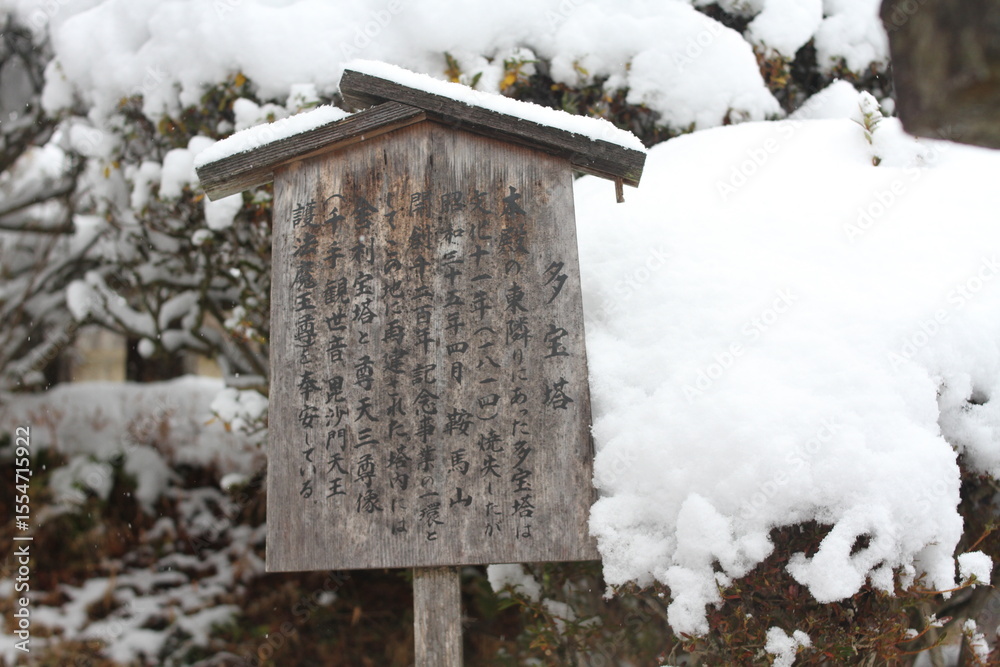 多宝塔
本殿の東隣りにあった多宝塔は
文化十一年(一八一四)焼失したが
昭和三十五年四月 鞍馬山
開創千二百年記念事業の一環と
してこの地に再建された塔内には
舎利宝塔と尊天三尊像
(千手観世音 毘沙門天王
護法魔王尊を奉安している
Adobe Stock | #1554715922